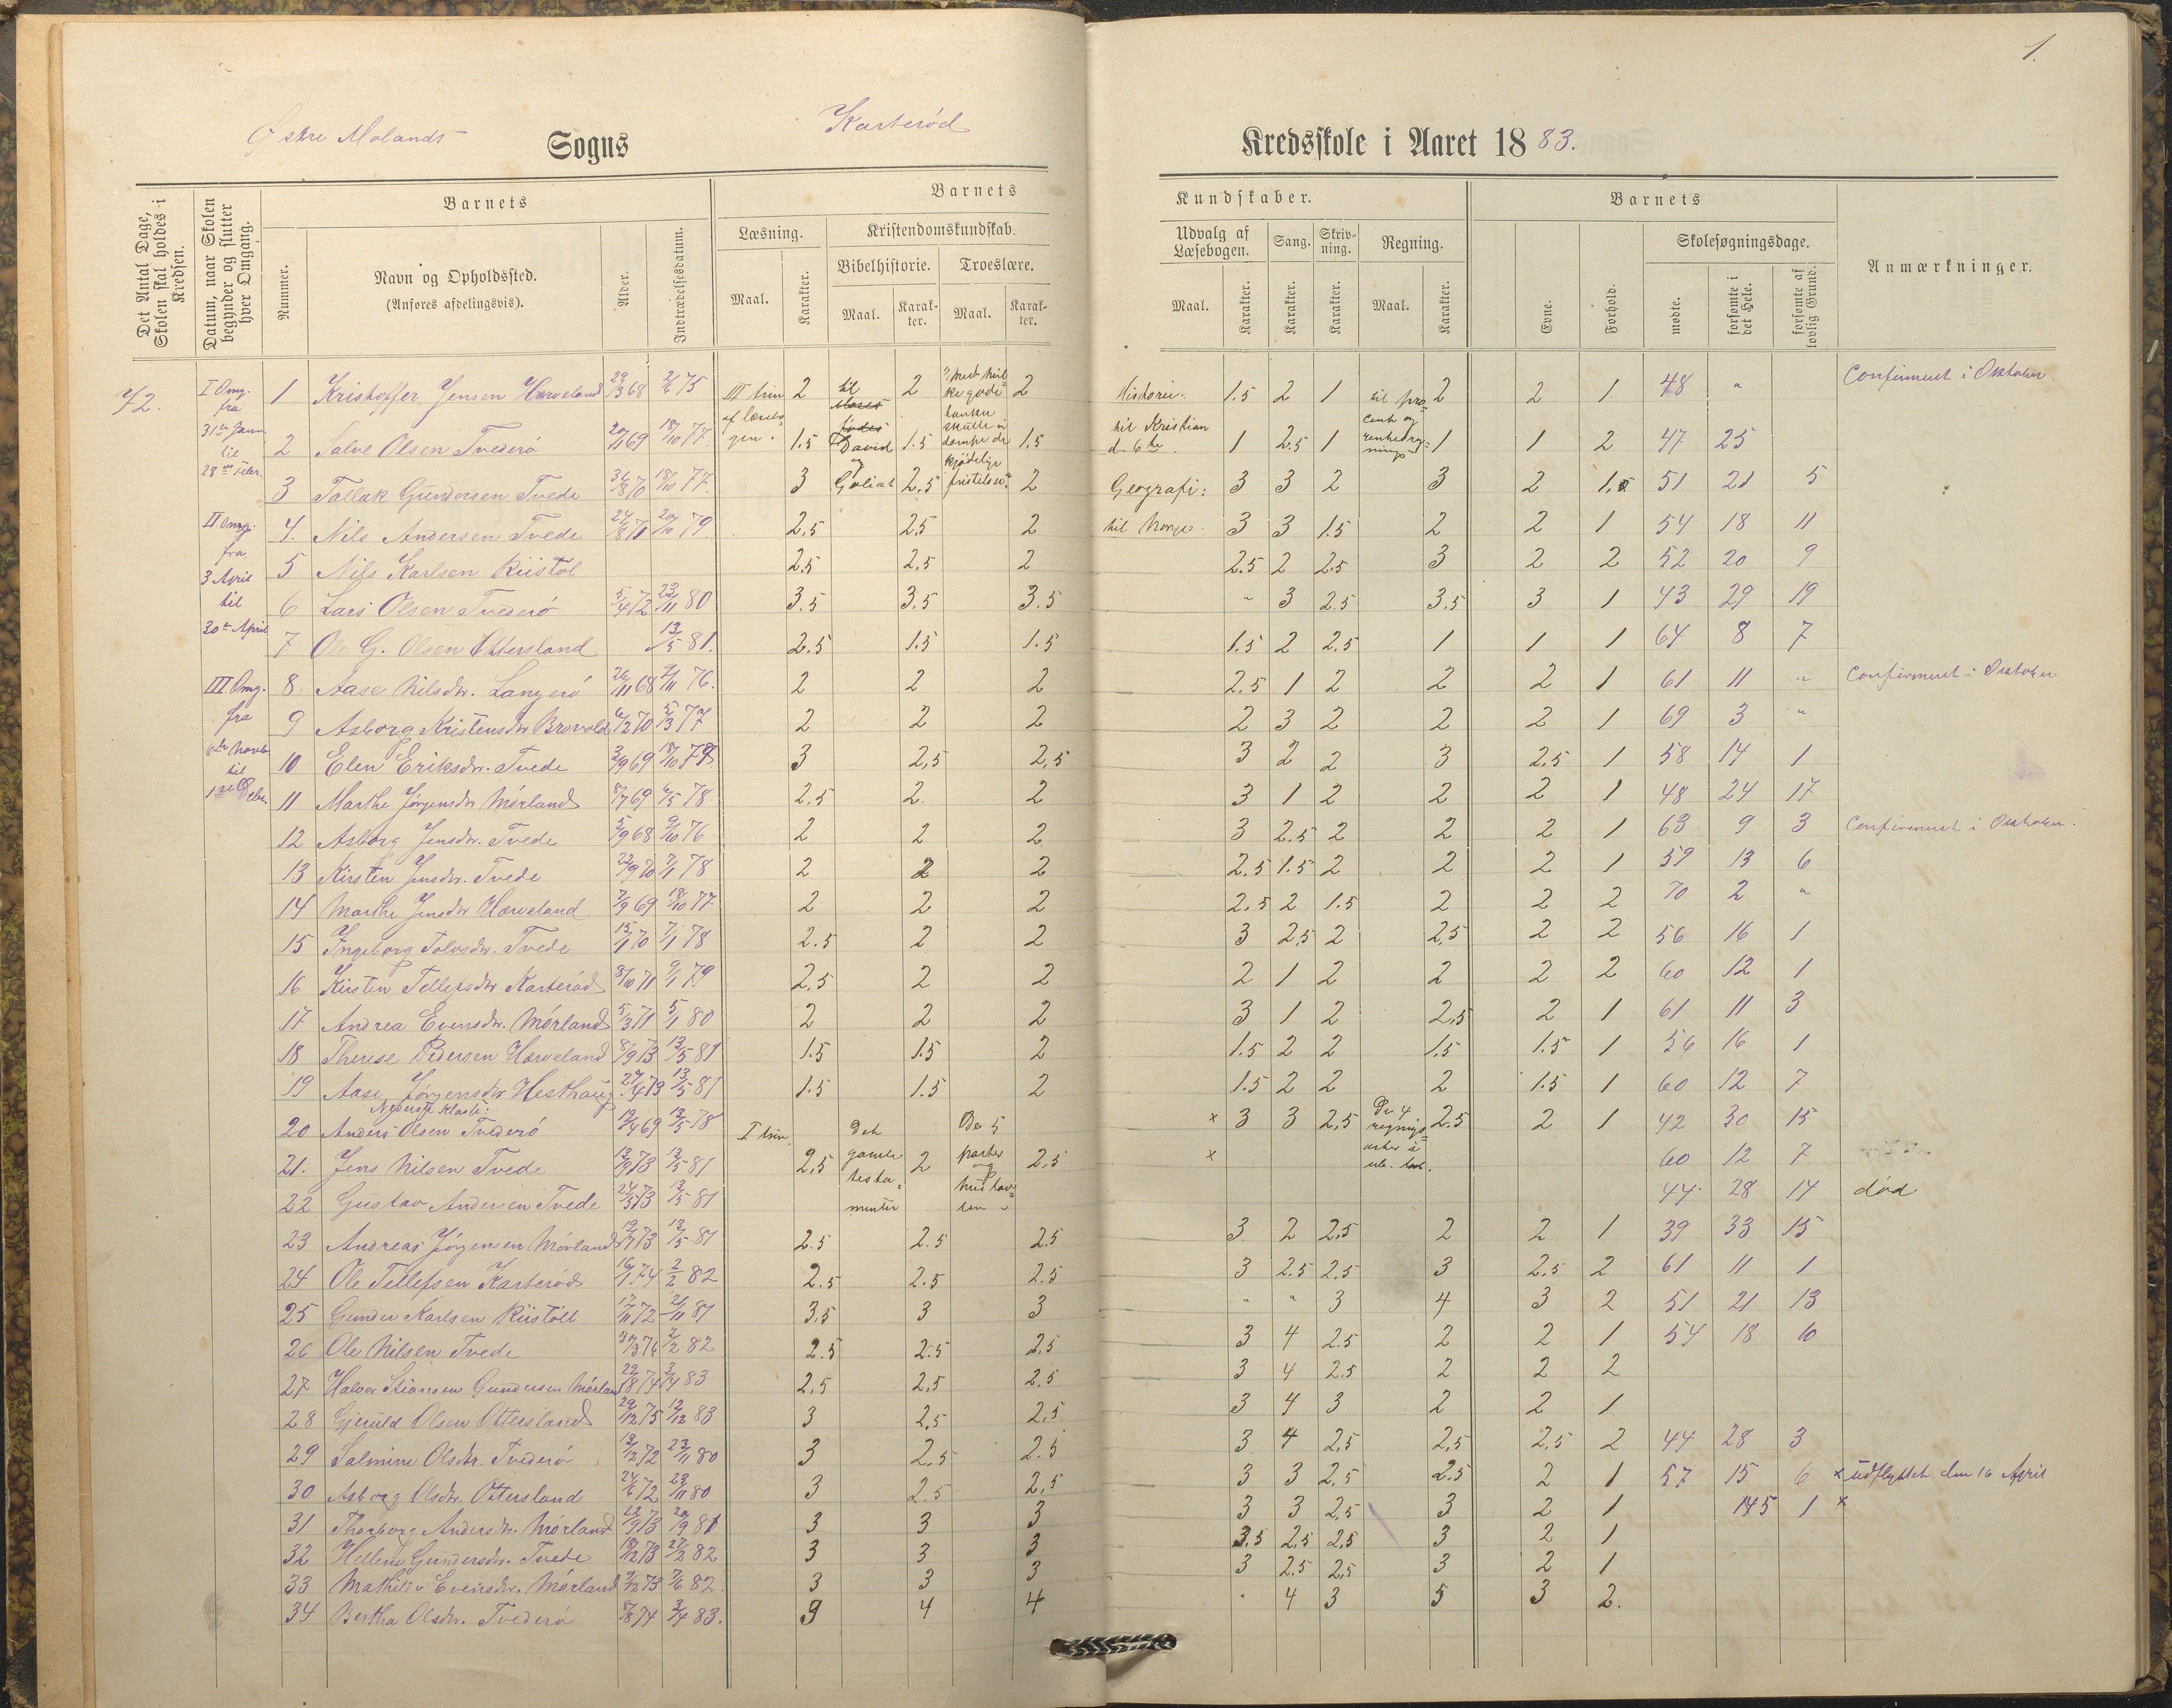 1.
Østre Molands Sogns Karterød Kredsskole i Aaret 1883.
Det Antal Dage, Skolen skal holdes i Kredsen.
Datum, naar Skolen begynder og slutter hver Omgang.
Barnets
Nummer.
Navn og Opholdssted.
(Anføres afdelingsvis).
Alder.
Indtrædelsesdatum.
Barnets Kundskaber.
Læsning.
Maal. Karakter.
Kristendomskundskab.
Bibelhistorie. Troeslære.
Maal. Karakter. Maal. Karakter.
Udvalg af Læsebogen.
Maal. Karakter.
Sang. Karakter.
Skrivning. Karakter.
Regning.
Maal. Karakter.
Barnets
Evne. Forhold.
Skolesøgningsdage.
mødte. forsømte i det Hele. forsømte af lovlig Grund.
Anmærkninger.
72.
I Omg. fra 31te Janu til 28de Febr.
II Omg. fra 3 April til 30te April
III. Omg. fra til
III trin af læsebogen.
til Moses fødes David og Goliat
Historie: til Kristian d. 6te
Geografi: til Norge.
til procent og
1 Kristoffer Jensen Hæveland 29/3 68 2/6 75 2 2 2 1.5 2 1 2 2 1 48 " Confirmert i Oktober
2 Salve Olsen Tvederø 20/11 69 18/10 77 1.5 1.5 1.5 1 2.5 1 1 1 2 47 25
3 Tallak Gundersen Tvede 18/10 77 3 2,5 2 3 3 2 3 2 1,5 51 21 5
4. Nils Andersen Tvede 24/8 71 20/10 79. 2,5 2,5 2 3 3 1.5 2 2 1 54 18 11
5 Nils Karlsen Riistøl 2.5 2,5 2 2.5 2 2.5 3 2 2 52 20 9
6 Lars Olsen Tvederø 5/4 72 23/11 80 3.5 3.5 3.5 " 3 2.5 3.5 3 1 43 29 19
7 Ole G. Olsen Ottersland 13/5 81. 2.5 1.5 1.5 1.5 2 2.5 1 1 1 64 8 7
8 Aase Nilsdtr. Langerø 26/11 68 76. 2 2 2 2.5 1 2 2 2 1 61 11 " Confirmert i Oktober
9 Asborg Kristensdtr Brovold 6/2 70 5/3 77 2 2 2 2 3 2 2 2 1 69 3 "
10 Elen Eriksdtr. Tvede 3/9 69 3 2,5 2,5 3 2 2 3 2,5 1 58 14 1
11 Marthe Jørgensdtr Mørland 8/7 69 6/5 78 2.5 2. 2 3 1 2 2 2 1 48 24 17
12 Asborg Jensdtr. Tvede 5/9 68 9/10 76 2 2 2 3 2.5 2 2 2 1 63 9 3 Confirmert i Oktober.
13 Kirsten Jensdtr. Tvede 22/9 70 7/1 78 2 2 2 2.5 1.5 2 2 2 1 59 13 6
14 Marthe Jensdtr Hæveland 7/9 69 18/10 77 2 2 2 2.5 2 1.5 2 2 2 70 2 "
15 Ingeborg Tolvsdtr. Tvede 15/1 70 7/1 78 2.5 2 2 3 2,5 2 2,5 2 2 56 16 1
16 Kirsten Tellefsdtr Karterød 8/10 71 9/1 79 2,5 2 2 2 1 2 2 2 2 60 12 1
17 Andrea Evensdtr. Mørland 5/3 71 5/1 80 2 2 2 3 1 2 2,5 2 1 61 11 3
18 Therese Pedersen Hæveland 8/9 73 13/5 81 1.5 1.5 2 1.5 2 2 1.5 1.5 1 56 16 1
19 Aase Jørgensdtr Hesthaug 27/4 73 13/5 81 1.5 1.5 2 1.5 2 2 2 1.5 1 60 12 7
Nederste Klasse:
I trin. Det gamle testamenter De 5 parter og hustavlen
De 4 regningsarter i
20 Anders Olsen Tvederø 19/4 69 13/5 78 × 3 3 2,5 2.5 2 1 42 30 15
21. Jens Nilsen Tvede 13/9 73 13/5 81 2,5 2 2,5 × 60 12 7
22 Gustav Andersen Tvede 24/5 73 13/5 81 44. 28 14 død
23 Andreas Jørgensen Mørland 19/7 73 13/5 81 2.5 2.5 2.5 3 2 2,5 2 2 1 39 33 15
24 Ole Tellefsen Karterød 16/1 74 2/2 82 2.5 2.5 2.5 3 2.5 2.5 3 2.5 2 61 11 1
25 Gunder Karlsen Riistøll 17/11 72 21/11 81 3,5 3 3 " " 3 4 3 2 51 21 13
26 Ole Nilsen Tvede 2/2 82 2.5 2.5 2.5 3 4 2.5 2 2 1 54 18 10
27 Halvor Stiansen Gundersen Mørland 22/8 74 3/4 83 2,5 2,5 2,5 3 4 2.5 2 2 2
28 Gjeruld Olsen Ottersland 29/12 75 12/12 83 3 2,5 2,5 3 4 3 2 2 1
29 Salmine Olsdtr. Tvederø 13/12 72 23/11 80 3 2,5 2.5 3 4 2,5 2,5 2,5 2 44 28 3
30 Asborg Olsdtr. Ottersland 24/6 72 23/11 80 3 2.5 2,5 3 3 2,5 2.5 2 1 57 15 6 × udflyttet den 16 April
31 Thorborg Andersdtr. Mørland 22/9 73 20/9 81 3 3 3 3 3 2,5 3 2 1 145 1 ×
32 Hellene Gundersdtr. Tvede 18/12 73 27/2 82 3 3 3 3.5 2,5 2,5 3 2 1
33 Mathilde Evensdtr. Mørland 9/12 73 7/6 82. 3 3 3 3 2.5 2,5 3 2 1
34 Bertha Olsdtr. Tvederø 8/8 74 3/4 83. 9 4 4 4 3 5 3 2.